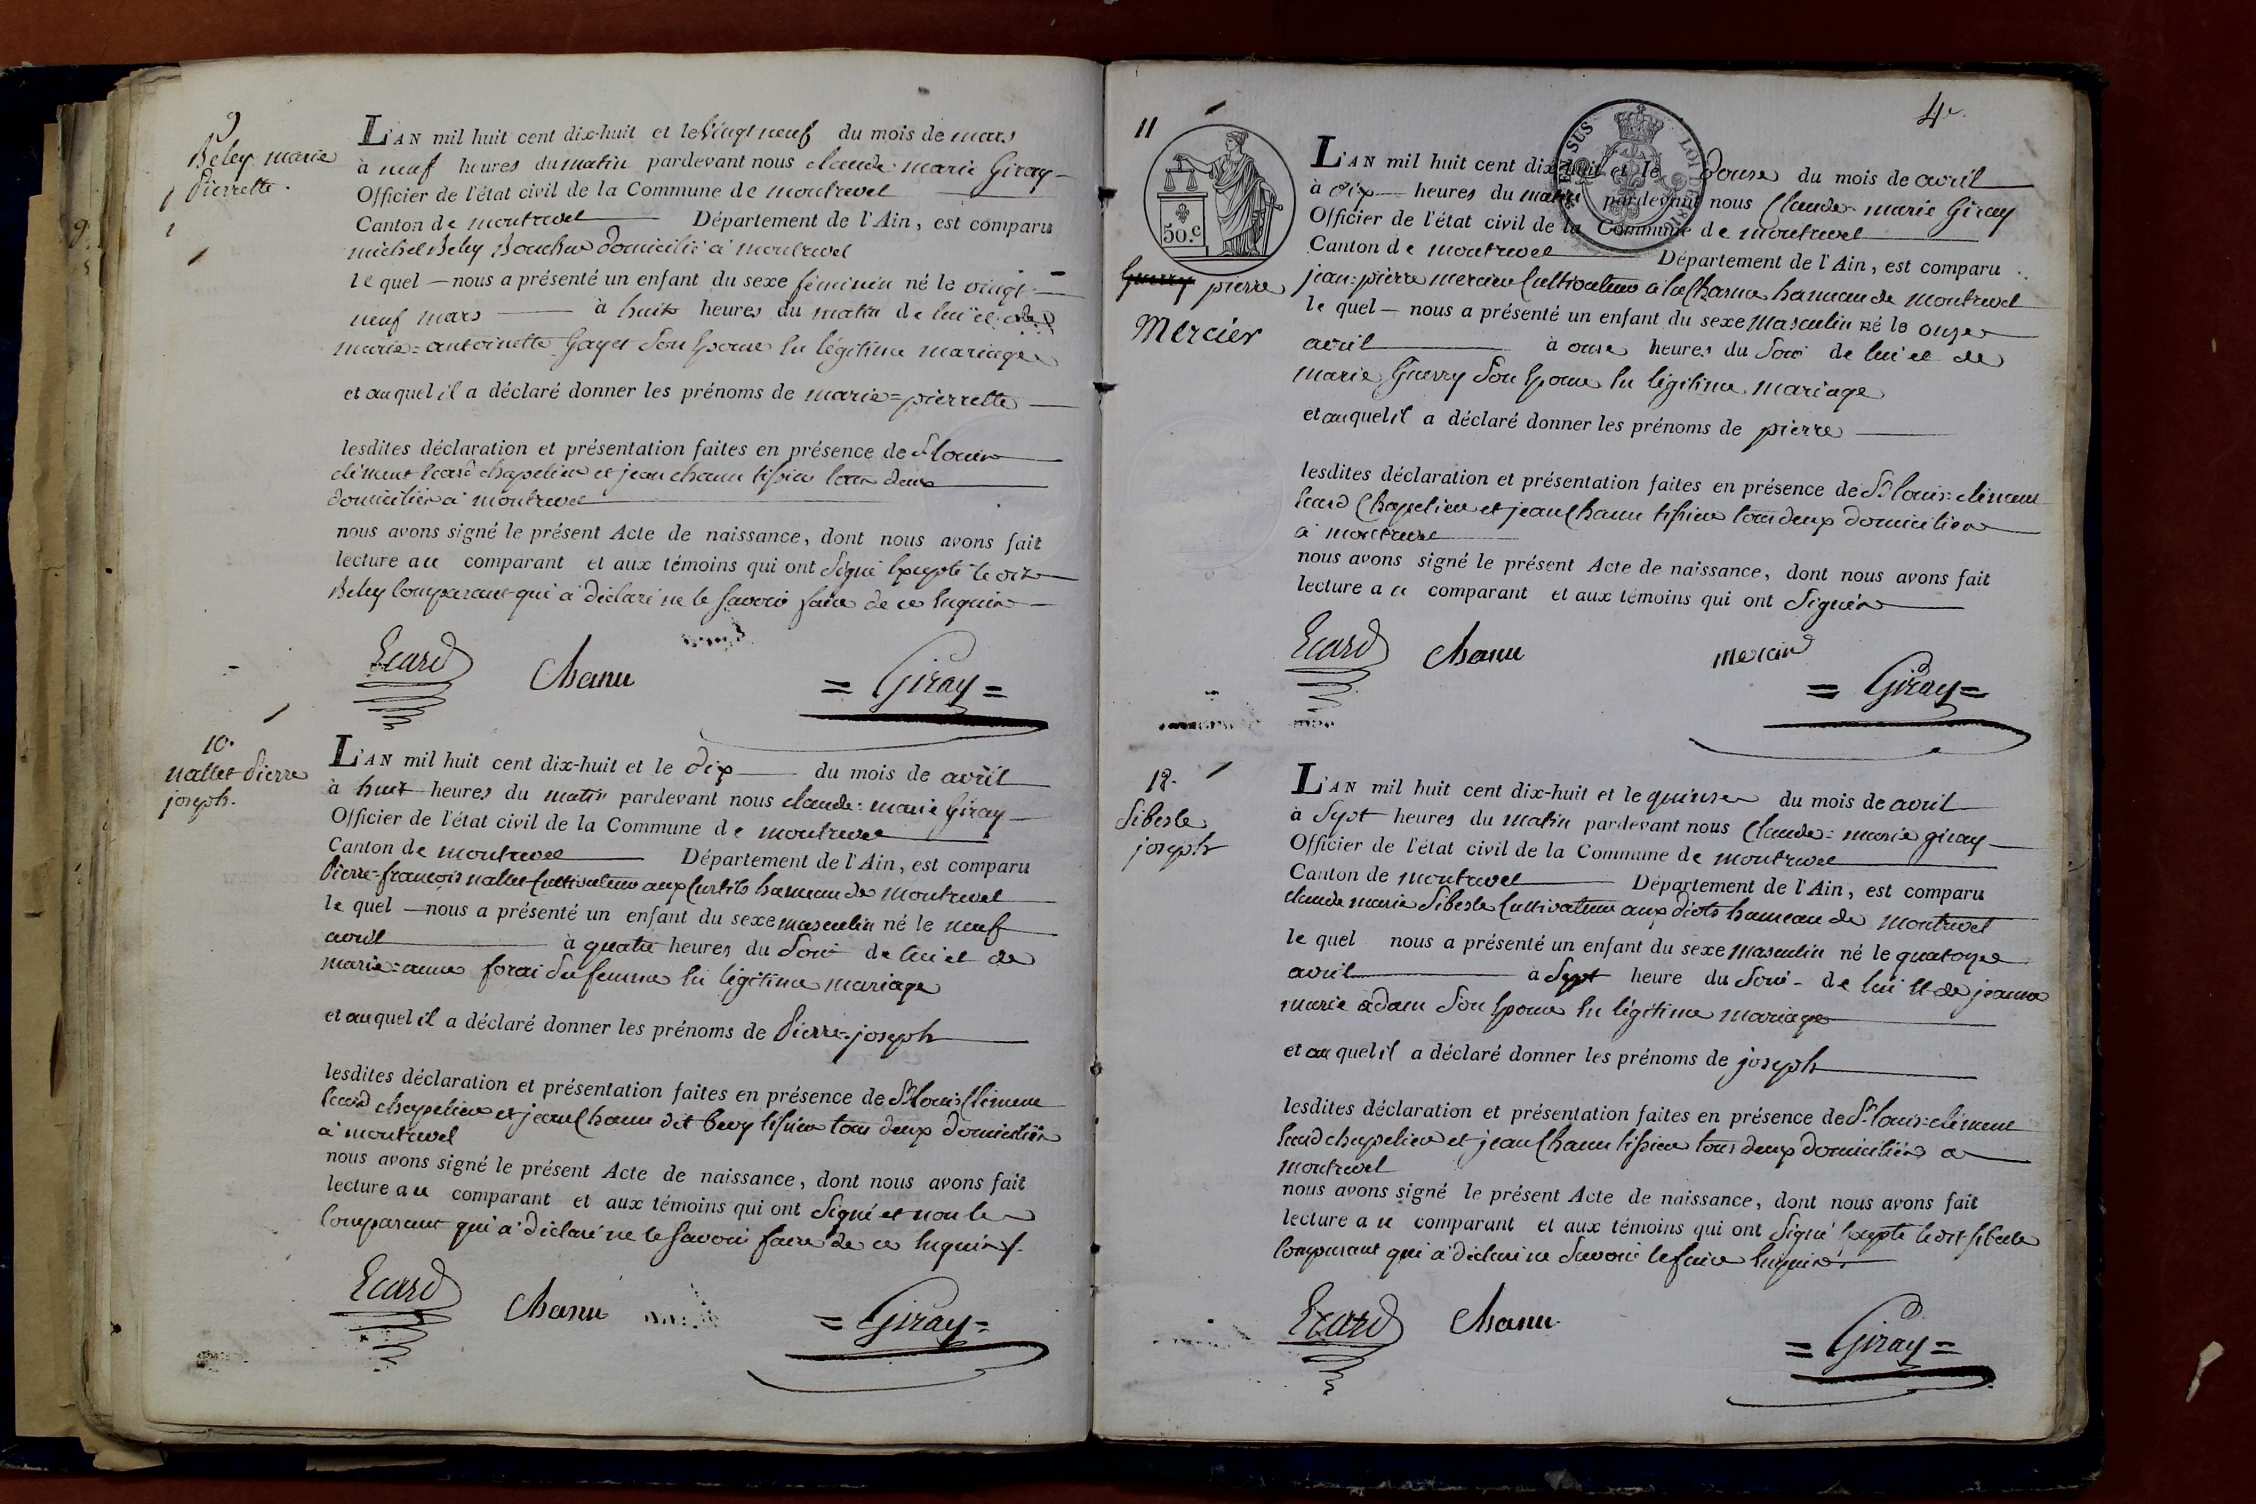 9
Beley marie
Pierrette.
L'AN mil huit cent dix-huit et le vingt neuf du mois de mars
à neuf heures du matin pardevant nous claude marie Giray
Officier de l'état civil de la Commune de montrevel
Canton de montrevel Département de l'Ain, est comparu
michel Beley Boucher domicilié à montrevel
le quel nous a présenté un enfant du sexe féminin né le vingt
neuf mars à huit heures du matin de lui et de
marie=antoinette Gayet Son Epouse En légitime mariage
et auquel il a déclaré donner les prénoms de marie=pierrette
lesdites déclaration et présentation faites en présence de Sr louis
clément Ecard chapelier et jean chanu tissier tous deux
domiciliés à montrevel
nous avons signé le présent Acte de naissance, dont nous avons fait
lecture au comparant et aux témoins qui ont Signé Excepté le dit
Beley Comparant qui a déclaré ne le Savoir faire de ce Enquis
Ecard Chanu = Giray =
10.
nallet Pierre
joseph.
L'AN mil huit cent dix-huit et le dix du mois de avril
à huit heures du matin pardevant nous claude=marie Giray
Officier de l'état civil de la Commune de montrevel
Canton de montrevel Département de l'Ain, est comparu
Pierre-françois nallet Cultivateur aux Curtils hameau de montrevel
le quel nous a présenté un enfant du sexe masculin né le neuf
avril à quatre heures du Soir de lui et de
marie=anne forai Sa femme En légitime mariage
et auquel il a déclaré donner les prénoms de Pierre-joseph
lesdites déclaration et présentation faites en présence de Sr louis Clément
Ecard chapelier et jean Chanu dit bevy tissier tous deux domiciliés
à montrevel
nous avons signé le présent Acte de naissance, dont nous avons fait
lecture au comparant et aux témoins qui ont Signé et non le
Comparant qui a déclaré ne le Savoir faire de ce Enquis
Ecard Chanu = Giray =
4e.
11
50.c
EN SUS
LOI DE 1816
Guerry pierre
Mercier
L'AN mil huit cent dix-huit et le douse du mois de avril
à dix heures du matin pardevant nous Claude-marie Giray
Officier de l'état civil de la Commune de montrevel
Canton de montrevel Département de l'Ain, est comparu
jean=pierre mercier Cultivateur à la Charme hameau de montrevel
le quel nous a présenté un enfant du sexe masculin né le onze
avril à onse heures du Soir de lui et de
marie Guerry Son Epouse En légitime mariage
et auquel il a déclaré donner les prénoms de pierre
lesdites déclaration et présentation faites en présence de Sr louis=clément
Ecard Chapelier et jean Chanu tissier tous deux domiciliés
à montrevel
nous avons signé le présent Acte de naissance, dont nous avons fait
lecture au comparant et aux témoins qui ont Signés
Ecard Chanu mercier = Giray =
12.
Siberte
joseph
L'AN mil huit cent dix-huit et le quinse du mois de avril
à Sept heures du matin pardevant nous Claude=marie giray
Officier de l'état civil de la Commune de montrevel
Canton de montrevel Département de l'Ain, est comparu
claude marie Siberte Cultivateur aux diots hameau de montrevel
le quel nous a présenté un enfant du sexe masculin né le quatorze
avril à Sept heure du Soir de lui Et de jeanne
marie adam Son Epouse En légitime mariage
et auquel il a déclaré donner les prénoms de joseph
lesdites déclaration et présentation faites en présence de Sr louis=clément
Ecard chapelier et jean Chanu tissier tous deux domiciliés à
montrevel
nous avons signé le présent Acte de naissance, dont nous avons fait
lecture au comparant et aux témoins qui ont Signé Excepté le dit Siberte
Comparant qui a déclaré ne Savoir le faire Enquis
Ecard Chanu. = Giray =